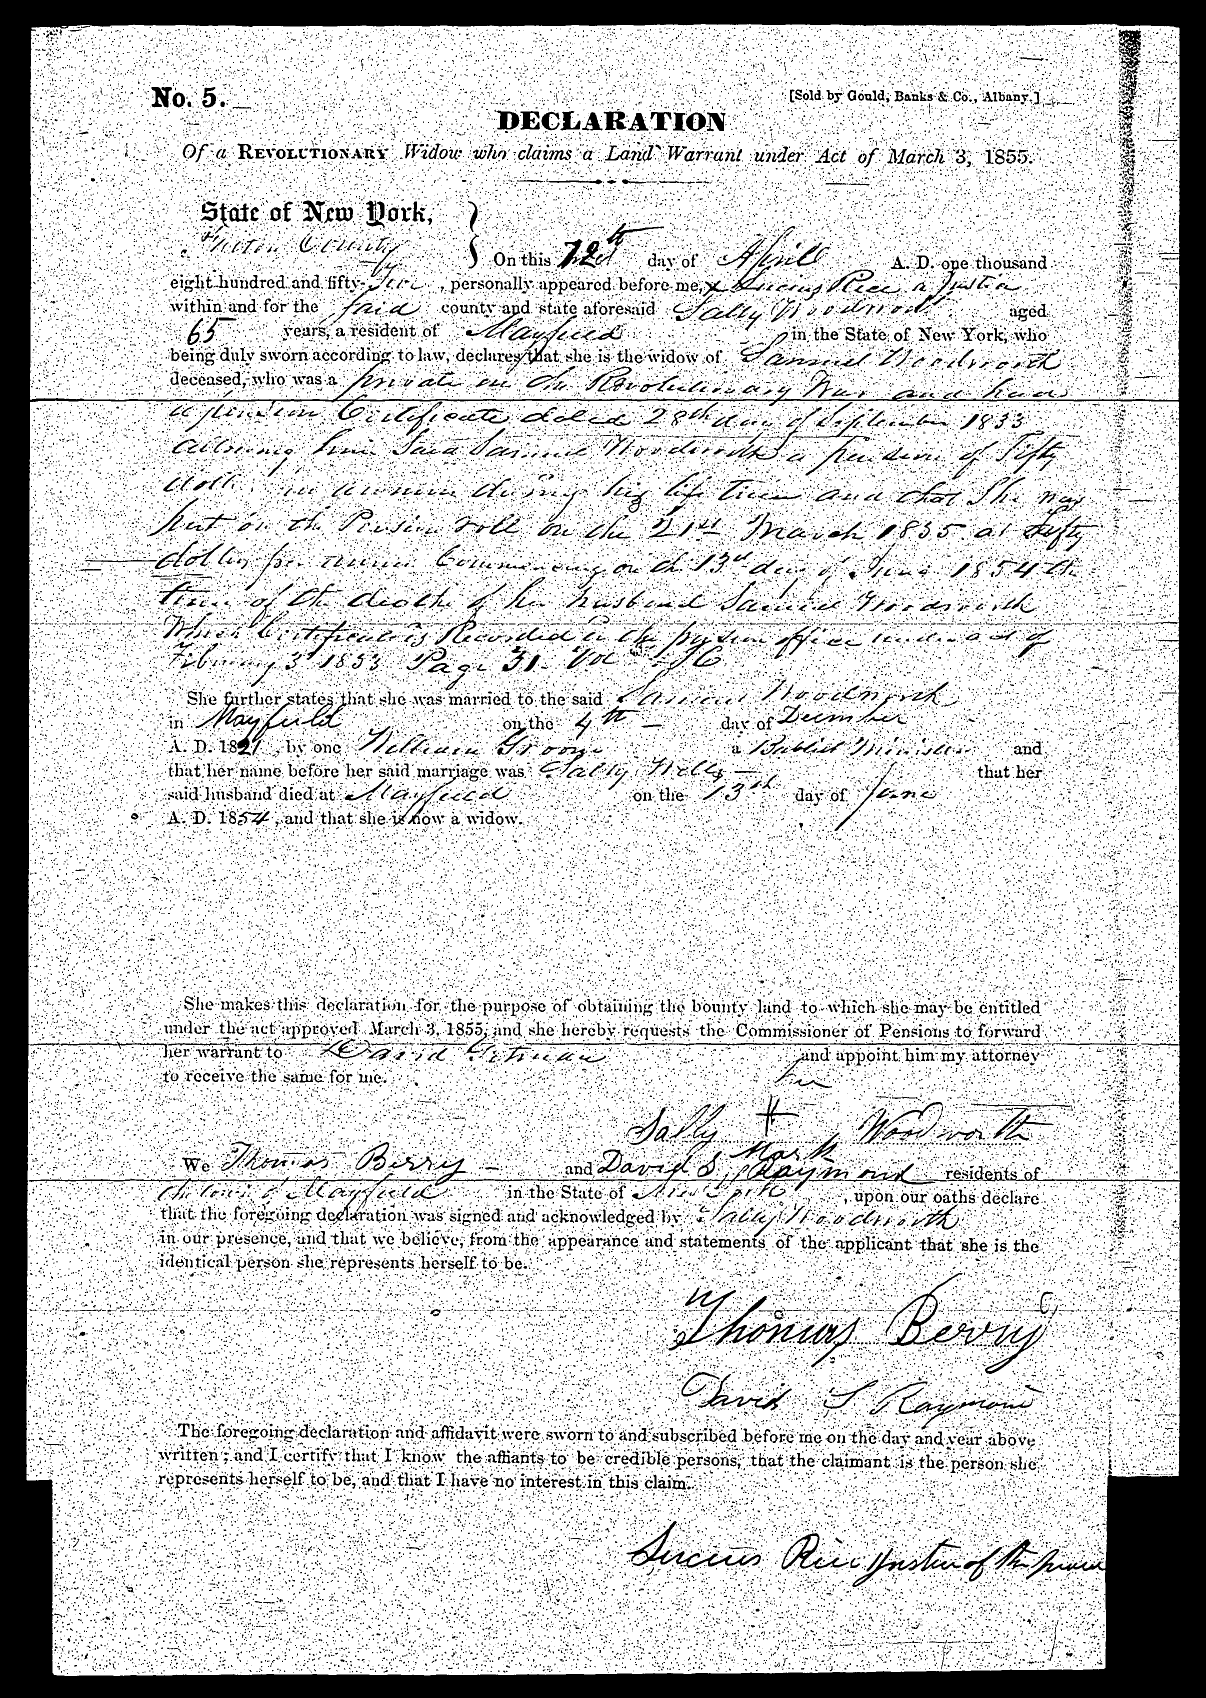 No. 5.
[Sold by Gould, Banks & Co., Albany.]
DECLARATION
Of a REVOLUTIONARY Widow who claims a Land Warrant under Act of March 3, 1855.
State of New York,
Fulton County
On this 12th day of April A. D. one thousand
eight hundred and fifty- , personally appeared before me, Lucius Rice a Justice
within and for the said county and state aforesaid Sally Woodworth aged
65 years, a resident of Mayfield in the State of New York, who
being duly sworn according to law, declares that she is the widow of Samuel Woodworth
deceased, who was a private in the Revolutionary War and had
a pension Certificate dated 28th day of September 1833
allowing him Said Samuel Woodworth a pension of Fifty
doll. per annum during his life time and that She was
put on the Pension roll on the 21st March 1855 at Fifty
dollars per annum Commencing on the 13th day of June 1854 the
time of the death of her husband Samuel Woodworth
Which Certificate is Recorded in the pension office under act of
February 3d 1853 Page 31 Vol
She further states that she was married to the said Samuel Woodworth
in Mayfield on the 4th day of December
A. D. 1821, by one William Groom a Baptist Minister and
that her name before her said marriage was Sally Wells that her
said husband died at Mayfield on the 13th day of June
A. D. 1854, and that she is now a widow.
She makes this declaration for the purpose of obtaining the bounty land to which she may be entitled
under the act approved March 3, 1855, and she hereby requests the Commissioner of Pensions to forward
her warrant to David Getman and appoint him my attorney
to receive the same for me.
her
Sally + Woodworth
Mark
We Thomas Berry and David S. Raymond residents of
the town of Mayfield in the State of New York, upon our oaths declare
that the foregoing declaration was signed and acknowledged by Sally Woodworth
in our presence, and that we believe, from the appearance and statements of the applicant that she is the
identical person she represents herself to be.
Thomas Berry
David S Raymond
The foregoing declaration and affidavit were sworn to and subscribed before me on the day and year above
written; and I certify that I know the affiants to be credible persons, that the claimant is the person she
represents herself to be, and that I have no interest in this claim.
Lucius Rice Justice of the peace